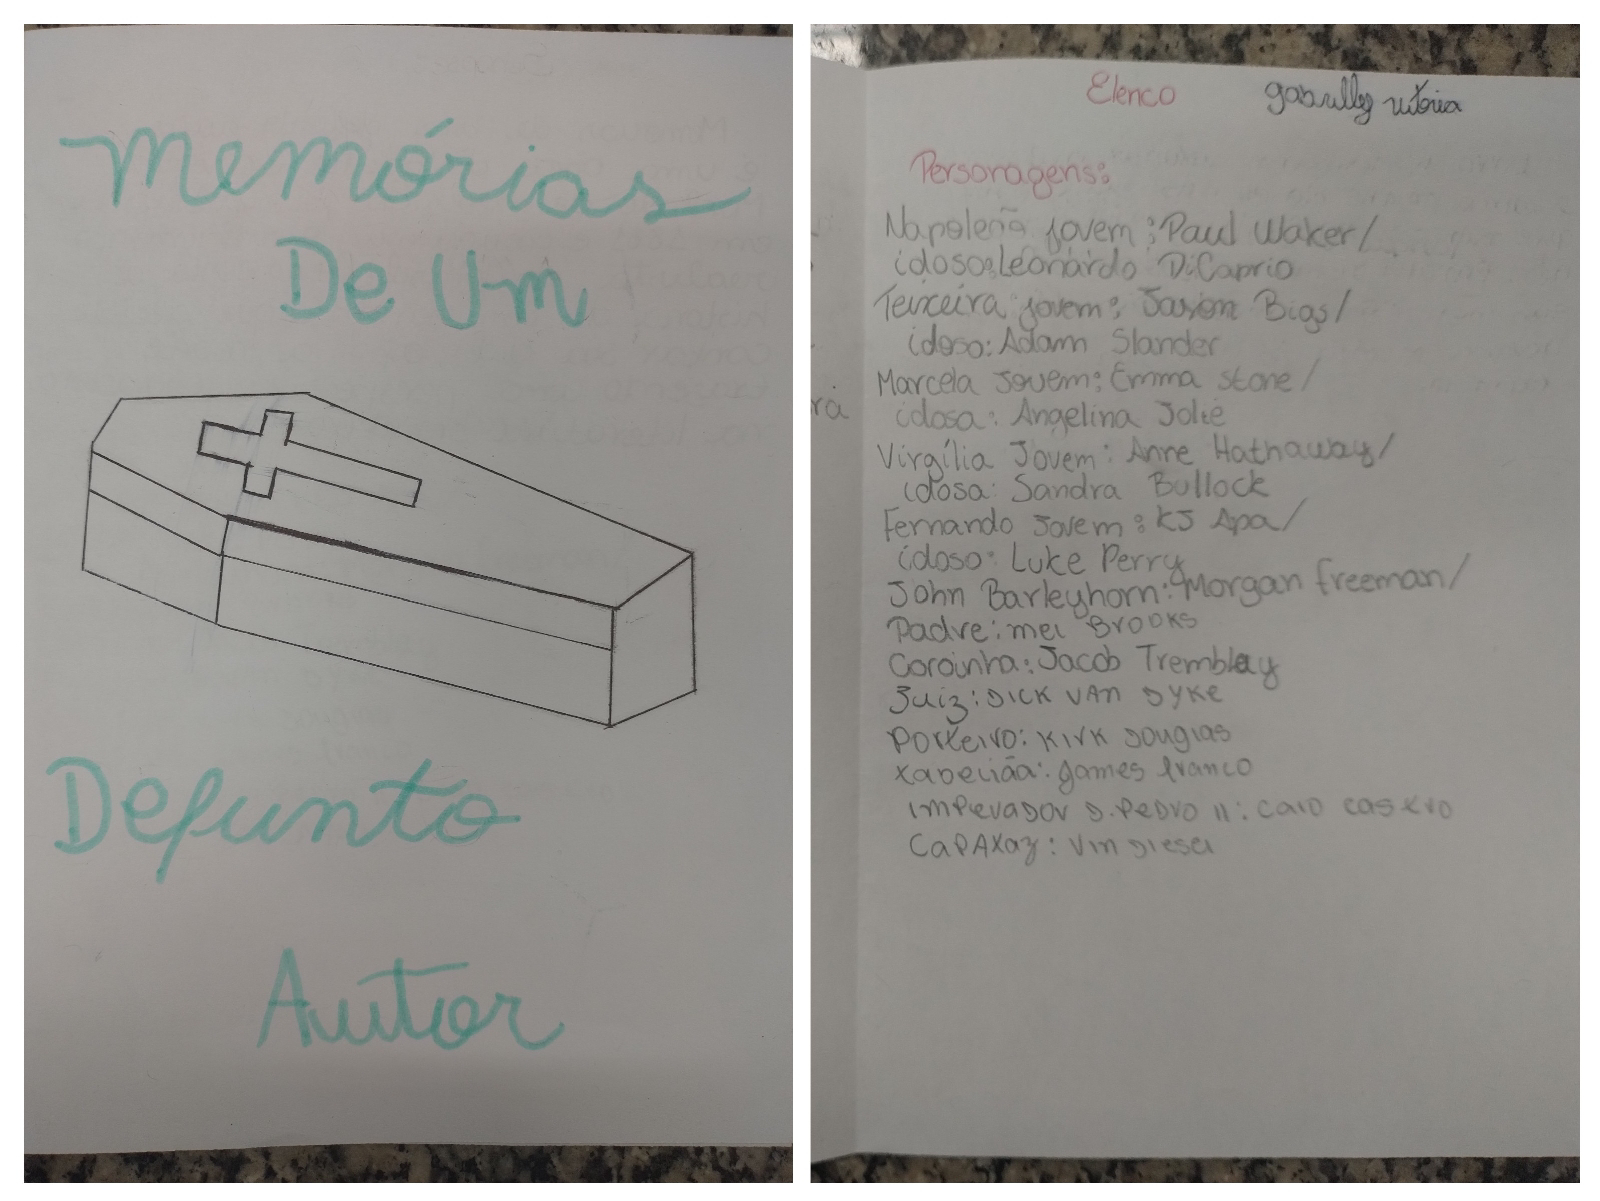 Memórias
De Um
Defunto
Autor
Elenco
Personagens:
Napoleão jovem: Paul Waker/
idoso: Leonardo DiCaprio
Teixeira jovem: Bigs/
idoso: Adam Slander
Marcela Jovem: Emma stone/
idosa: Angelina Jolie
Virgília Jovem: Anne Hathaway/
idosa: Sandra Bullock
Fernando Jovem: KJ Apa/
idoso: Luke Perry
John Barleyhorn: Morgan freeman/
Padre: mel BROOKS
Coroinha: Jacob Tremblay
Juiz: DICK VAN DYKE
Porteiro: KIRK Douglas
Tabelião: James franco
IMPERADOR D. PEDRO II: CAIO CASTRO
CAPATAZ: Vin DIESEL